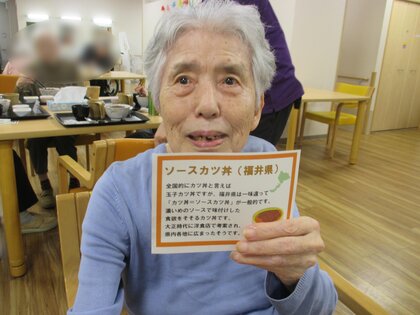 ソースカツ丼（福井県）
全国的にカツ丼と言えば
玉子カツ丼ですが、福井県は一味違って
「カツ丼＝ソースカツ丼」が一般的です。
濃いめのソースで味付けした
食欲をそそるカツ丼です。
大正時代に洋食店で考案され、
県内各地に広まったそうです。